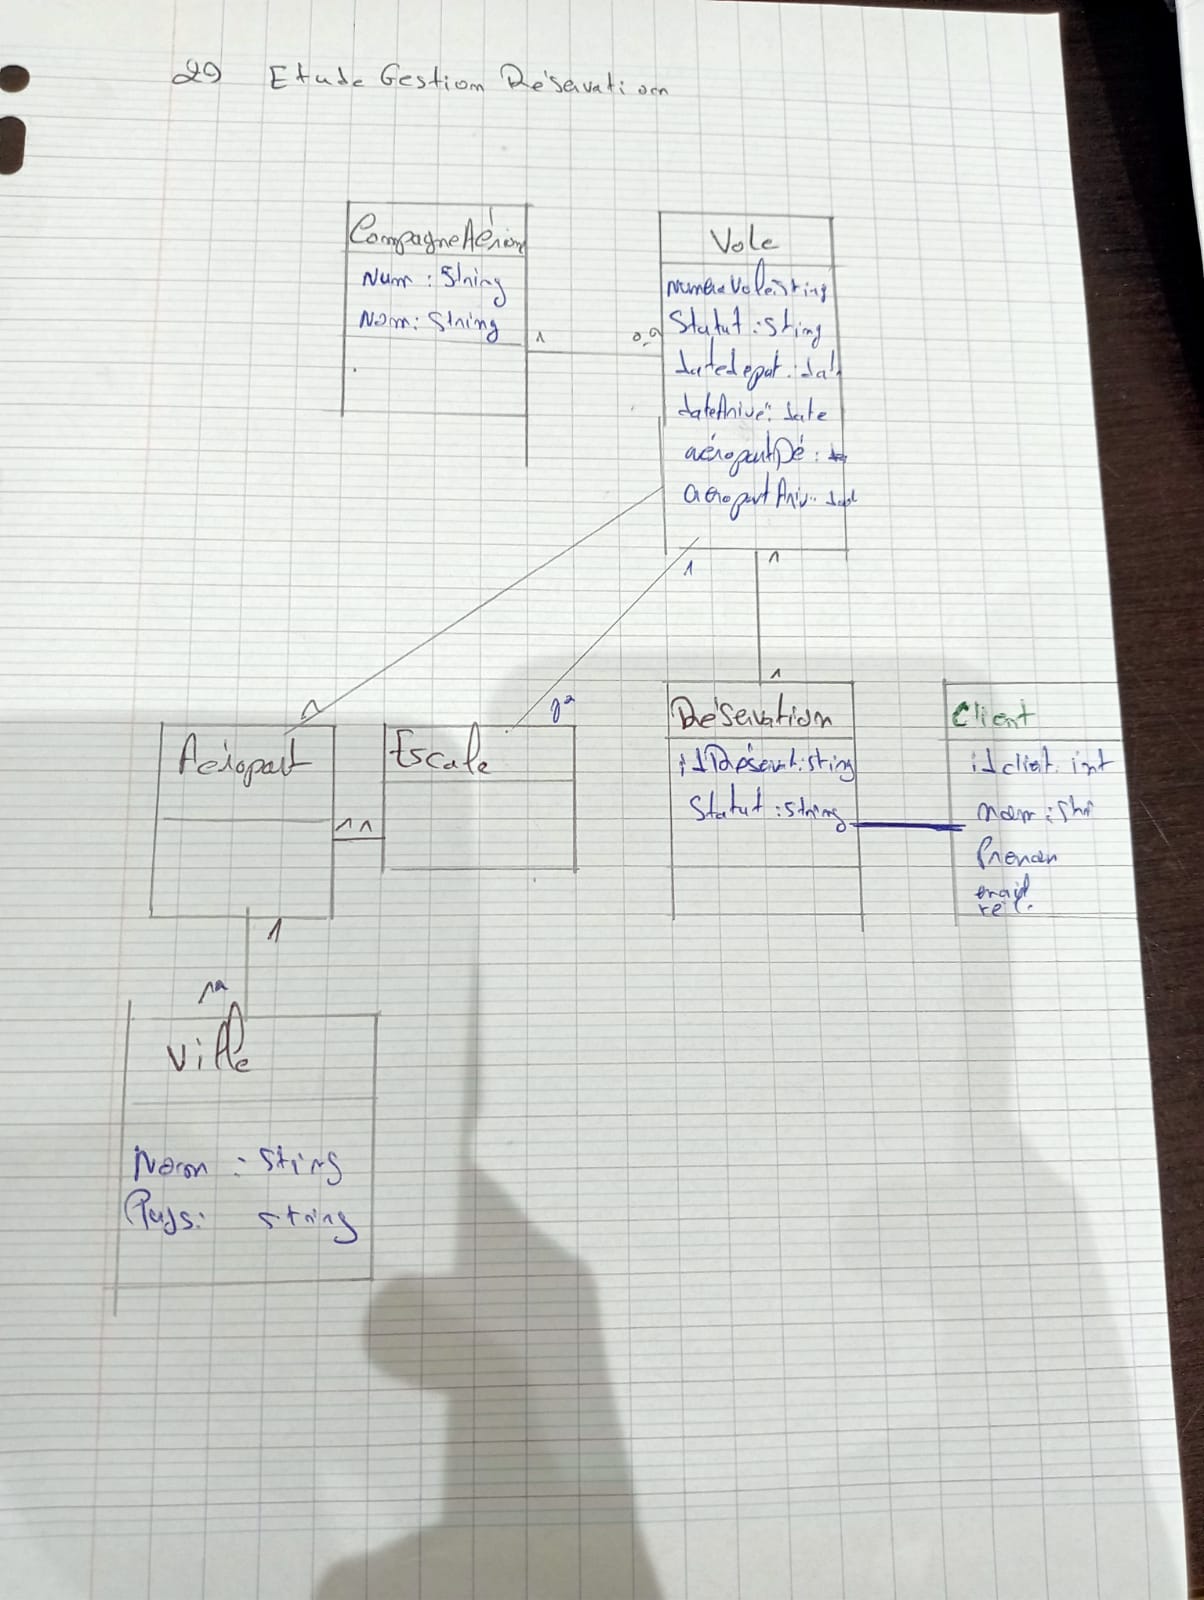 29 Etude Gestion Réservation
CompagneAérien
Num : String
Nom : String
1
Vole
numéroVole:string
Statut : string
datedepat : dat
dateArivé : date
aéroportDé :
aéroportAriv :
1
1
1
Aéroport
Escale
Réservation
idRéservat:string
Statut : string
Client
idclient. int
nom : Stri
Prenom
email
1 1
1
Ville
Nom : String
Pays : string